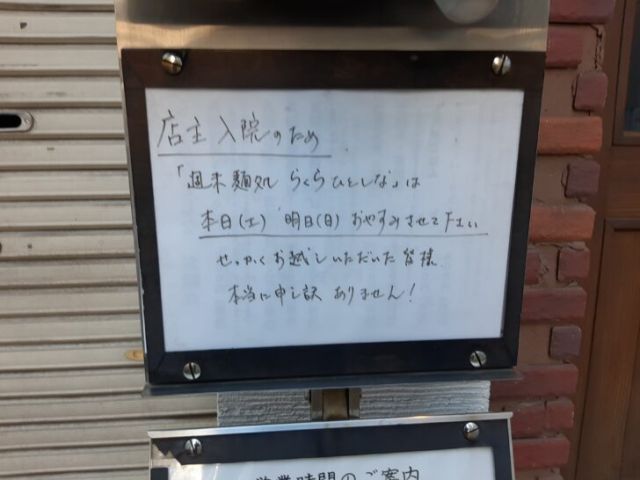 店主入院のため
「週末麺処 らくらひとしな」は
本日(土) 明日(日) おやすみさせて下さい
せっかくお越しいただいた皆様
本当に申し訳ありません!
営業時間のご案内